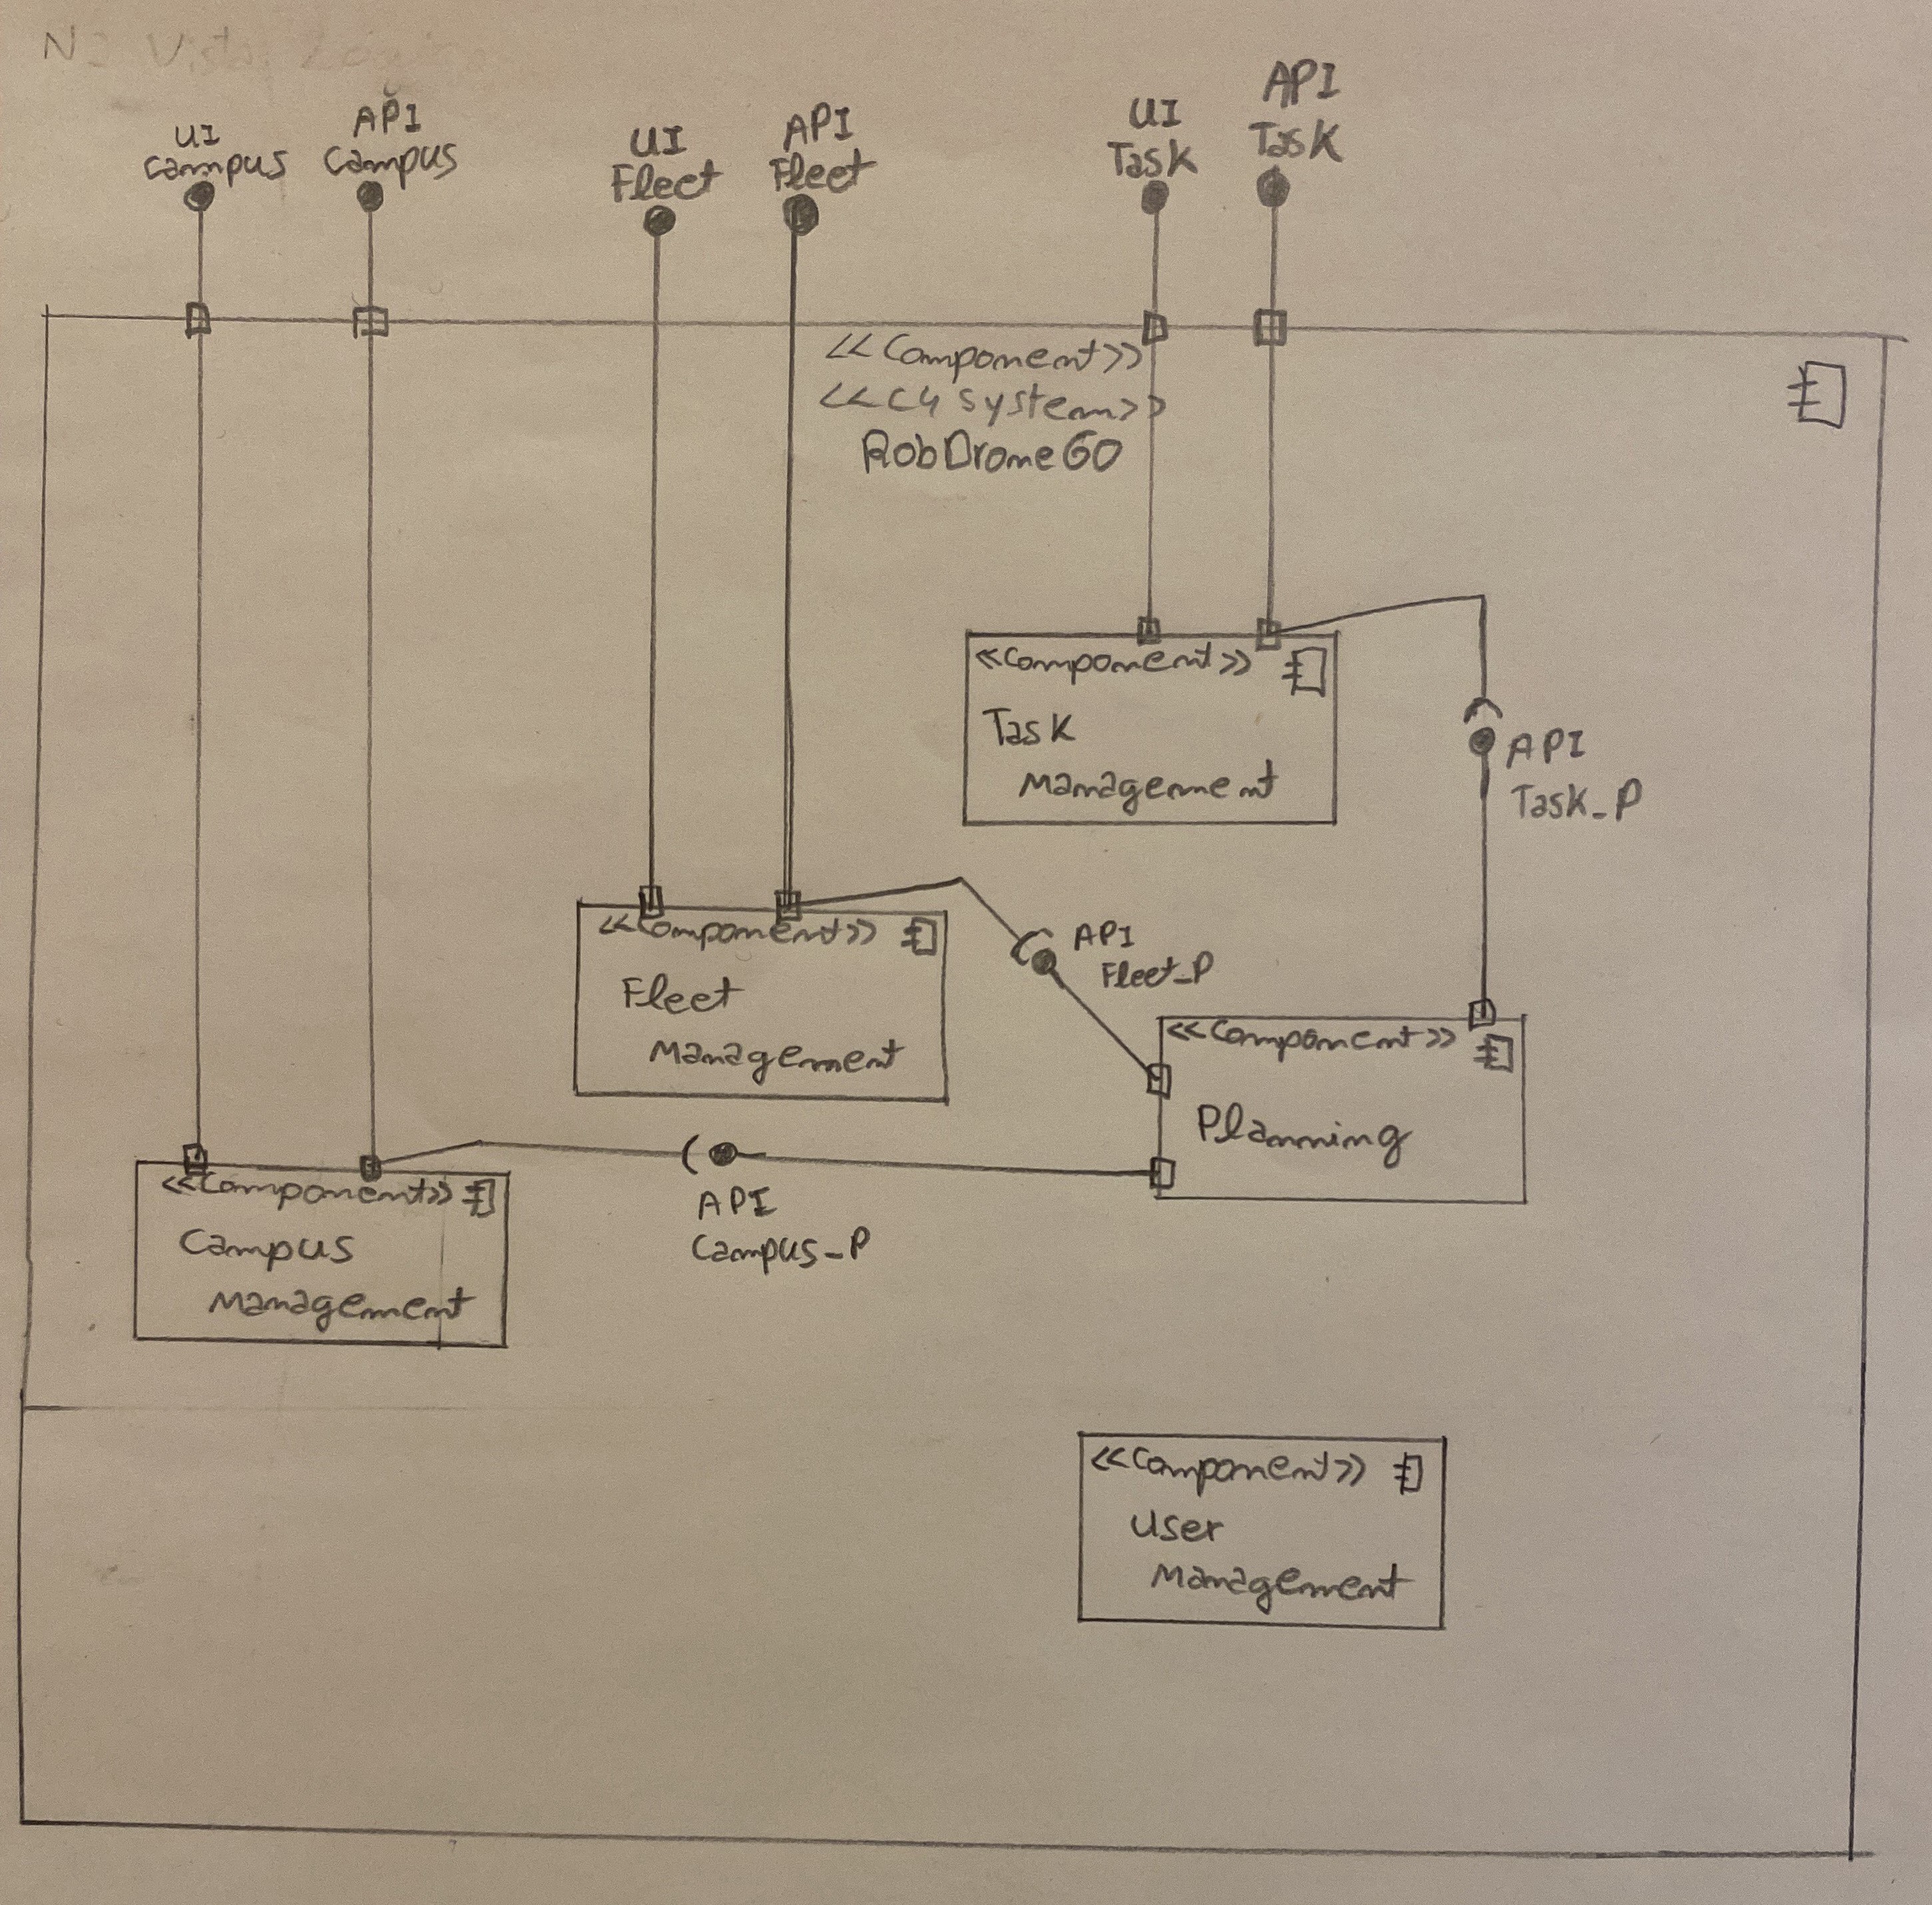 N2 Vista Lógica
UI
Campus
API
Campus
UI
Fleet
API
Fleet
UI
Task
API
Task
<<Component>>
<<C4 System>>
RobDroneGO
<<Component>>
Task
Management
API
Task_P
<<Component>>
Fleet
Management
API
Fleet_P
<<Component>>
Planning
<<Component>>
Campus
Management
API
Campus_P
<<Component>>
User
Management